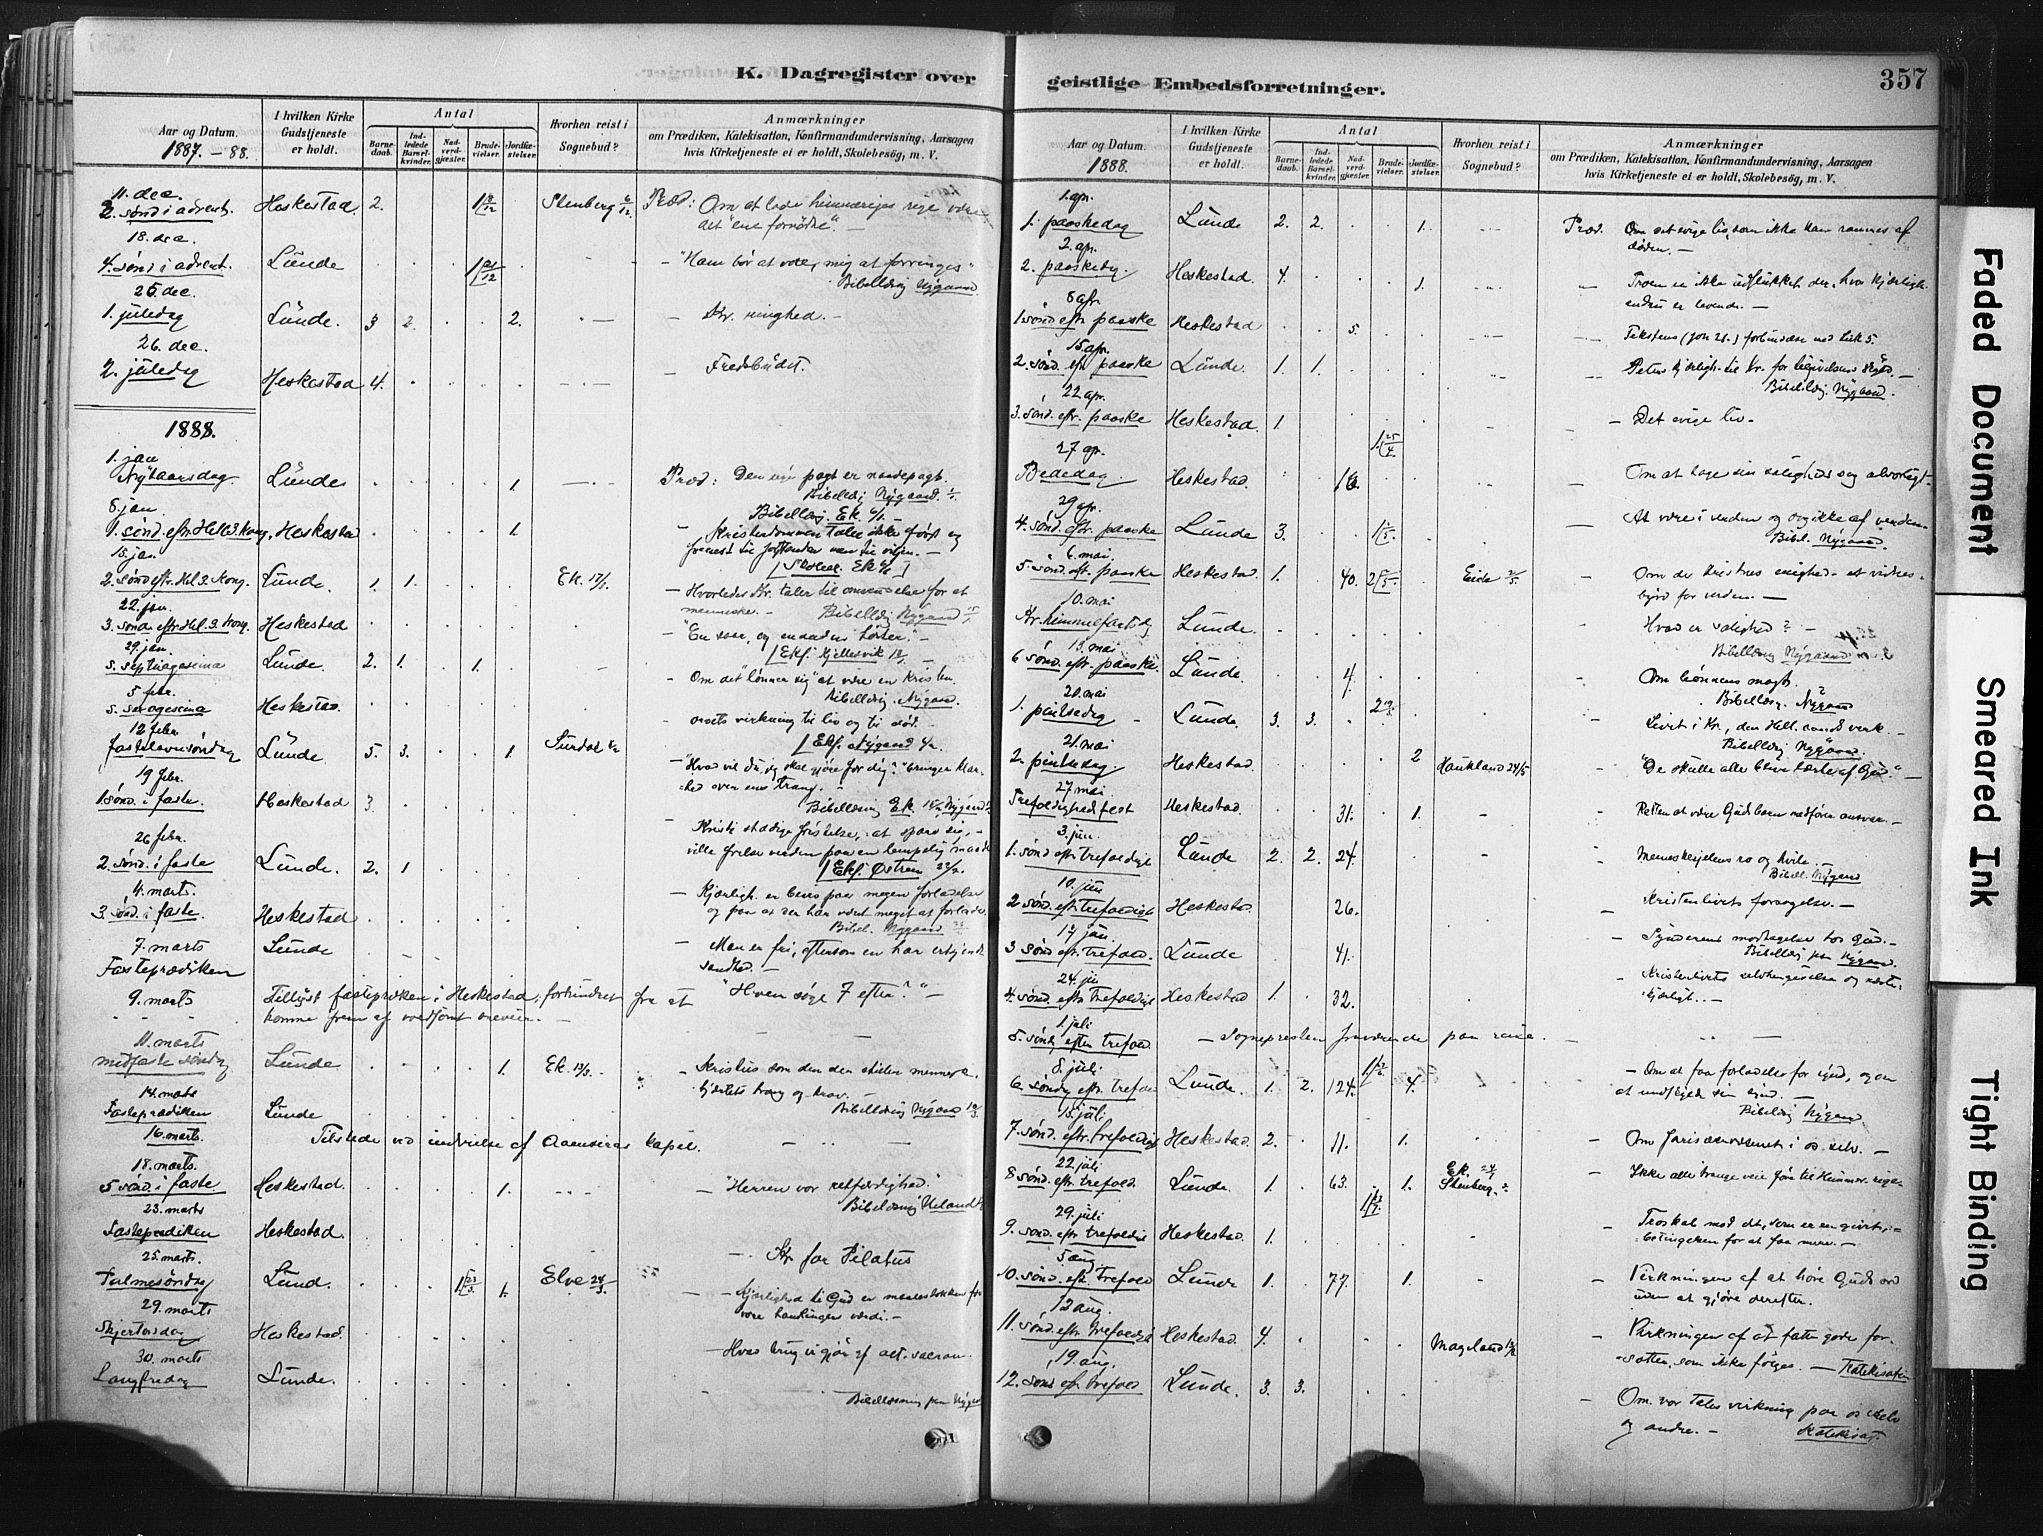 K. Dagregister over
Aar og Datum.
1887. - 88.
I hvilken Kirke
Gudstjeneste
er holdt.
Antal
Barne-
daab.
Ind-
ledede
Barsel-
kvinder.
Nad-
verd-
gjester.
Brude-
vielser.
Jordfæ-
stelser.
Hvorhen reist i
Sognebud?
Anmærkninger
om Prædiken, Katekisation, Konfirmandundervisning, Aarsagen
hvis Kirketjeneste ei er holdt, Skolebesög, m. V.
11. dec.
2. sønd i advent. Heskestad. 2. Stenberg 6/12 Præd: Om at lade himmeriges rige være
det "ene fornødne". -
18. dec.
4. sønd i advent. Lunde "Ham bør at vokse, mig at forringes"
Bibellæsning Nygaard
25. dec.
1. juledag Lunde. 3 2. 2. Kr. ringhed. -
26. dec.
2. juledag Heskestad 4. Fredsbudet.
1888.
1. jan
Nytaarsdag. Lunde 1. Præd: Den nye pagt er naadepagt.
Bibellæs Nygaard 1/1
Bibellæsning Ek 6/1
8. jan
1. sønd. eftr. Hell. 3. Kong. Heskestad 1. Kristendommen taler ikke først og
fremst til forstanden men til viljen. -
15. jan
2. sønd eftr. Hel. 3. Kong. Lunde. 1. 1. Ek. 17/1 - Hvorledes Kr. taler til omvendelse for et
menneske. - Bibellæs Nygaard 15/1
22. jan.
3. sønda eftr. Hel. 3. Kong. Heskestad "En saar, og en anden høster." -
29. jan.
s. septuagesima Lunde. 2. 1. 1. - Om det "lønner sig" at være en kristen.
Bibellæs. Nygaard.
5 febr.
s. sexagesima Heskestad. - ordets virkning til liv og til død. -
12 febr.
fastelavnsøndag Lunde 5. 3. 1. "Hvad vil du, jeg skal gjøre for dig?" bringer klar-
hed over ens trang.
19 febr.
1 sønd. i faste. Heskestad 3. Kristi stadige fristelse, at spare sig, -
ville frelse verden paa en lempelig maade
26 febr.
2. sønd. i faste Lunde. 2. 1
4. marts.
3. sønd. i faste. Heskestad - Kjærligh. er bevis paa megen forladelse
Bibel. Nygaard
7. marts
Fasteprædiken Lunde - Man er fri, eftersom en har erkjendt
sandhed. -
9. marts Tillyst fastepræken i Heskestad; forhindret fra at
komme frem af voldsomt uveir. -
"Hvem søge I efter?" -
11. marts
midfaste søndag Lunde 1. Ek. 12/3. - Kristus som den der stiller mennesk.
hjertets trang og krav. -
Bibellæsning Nygaard
14. marts
Fasteprædiken Lunde
16. marts. Tilstede ved indvielse af Aaensiras kapel.
18. marts.
5 sønd. i faste Heskestad. 1. - "Herren vor retfærdighed."
Bibellæsning Heland
23. marts
Fasteprædiken Heskestad. Kr. for Pilatus
25. marts.
Palmesøndag Lund. 1 23/3. 1. Elve 24/3 - kjærlighed til Gud er maalestokken for
vore handlingers værdi. -
29. marts
Skjertorsdag Heskestad. - Hvad brug vi gjør af alt. sacram.
30. marts
Langfredag Lunde.
Bibellæsning paa Nygaard
geistlige Embedsforretninger.
357
Aar og Datum.
1888.
I hvilken Kirke
Gudstjeneste
er holdt.
Antal
Barne-
daab.
Ind-
ledede
Barsel-
kvinder.
Nad-
verd-
gjester.
Brude-
vielser.
Jordfæ-
stelser.
Hvorhen reist i
Sognebud?
Anmærkninger
om Prædiken, Katekisation, Konfirmandundervisning, Aarsagen
hvis Kirketjeneste ei er holdt, Skolebesög, m. V.
1. apr.
1. paaskedag Lunde 2. 2. 1. Præd. Om det evige liv, som ikke kan rammes af
døden. -
2. apr.
2. paaskedg. Heskestad. 4. 1. Troen er ikke udslukket der, hvor kjærligh.
endnu er levende. -
8 apr.
1. sønd eftr paaske Heskestad 5. Tekstens (Joh 21.) forbindelse med Luk 5.
15. apr.
2. sønd. eft paaske Lunde. 1. 1. Peters kjærligh. til Kr. for tilgivelsens skyld. -
Bibelldsg Nygaard.
22 apr.
3. sønd. eftr. paaske Heskestad. 1 - Det evige liv.
27 apr.
Bededag. Heskestad. 16. Om at tage sin salighedssag alvorligt.
29 apr.
4. sønd. eftr. paaske Lunde 3. At være i verden og dog ikke af verden.
Bibel. Nygaard.
6. mai
5 sønd. eft. paaske Heskestad. 1. 40. Eide 2/5. Om de kristnes enighed - et vidnes-
byrd for verden. -
10. mai
Kr. himmelfartsdg. Lunde. Hvad er salighed? -
Bibelldsg Nygaard
13. mai
6 sønd. eftr. paaske. Lunde. 4. Om bønnens magt.
Bibelldsg. Nygaard
20. mai
1. pintsedag Lunde. 3. 3. Livet i Kr., den Hell. aands verk. -
Bibelldsg Nygaard.
21. mai
2. pintsedag. Heskestad. 2 Haukland 24/5 "De skulle alle blive lærte af Gud." -
27 mai
Trefoldighedsfest Heskestad. 31. 1. Retten at være Guds barn medfører ansvar. -
3. jun.
1. sønd eftr. trefoldigh. Lunde 2. 2. 24. Menneskesjælens ro og hvile. -
Bibel. Nygaard
10. jun
2 sønd. eftr. trefoldigh. Heskestad. 26. Kristenlivets forsagelse. -
17 jun.
3 sønd. eft. trefold. Lunde 41. Synderens modtagelse hos Gud. -
Bibelldsg paa Nygaard
24. jun
4. sønd. eftr. Trefoldigh Heskestad 1. 32. Kristenlivets selvhengivelse og næste-
kjærligh. -
1. juli
5. sønd. eften trefold. - Sognepresten fraværende paa reise.
8. juli
6 søndg eftr. trefold Lunde. 1. 2. 124. 4. - Om at faa forladelse for synd, og om
at undskylde sin synd. -
Bibelldsg Nygaard
15. juli
7. sønd. eftr. trefoldigh Heskestad. 2. 11. 1. Om farisæervæsenet i os selv. -
22. juli
8 sønd. eft. trefold. Lunde. 1. 63. 1. Ek. 24/7
Stenberg. Ikke alle trange veie føre til Himmer. rige.
29. juli
9. sønd. eftr trefoldigh Heskestad. 1. - Troskab mod det, som er en givet, -
betingelsen for at faa mere. -
5 aug.
10. sønd. eft. trefold Lunde 1. 77. 1. - Virkningen af at høre Guds ord
uden at gjøre derefter.
12 aug.
11. sønd. eftr. trefoldigh Heskestad. 4. Mageland - Virkningen af at fatte gode for-
sætter, som ikke følges. - Katekisation
19. aug.
12. sønd eft. trefold Lunde. 3. 3. Om vor tales virkning paa os selv
og andre. - Katekisat.
Faded Document
Smeared Ink
Tight Binding